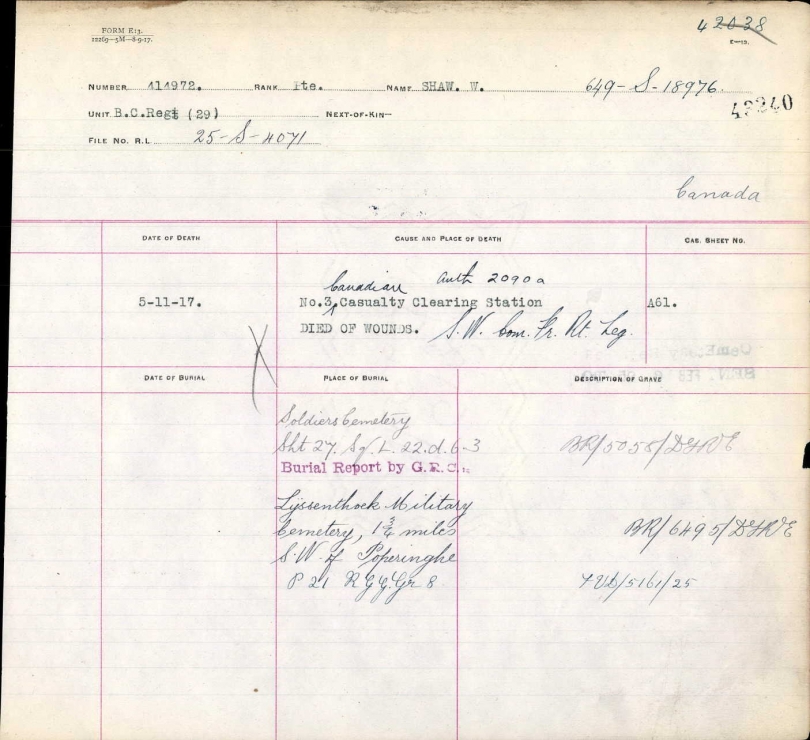 FORM E13.
12269—5M—8-9-17.
42038
E—13.
NUMBER 414972. RANK Pte. NAME SHAW. W. 649-S-18976.
42240
UNIT B.C.Regt (29) NEXT-OF-KIN—
FILE NO. R.L. 25-S-4071
Canada
DATE OF DEATH CAUSE AND PLACE OF DEATH CAS. SHEET NO.
Canadian Auth 2090a
5-11-17. No.3 Casualty Clearing Station A61.
DIED OF WOUNDS. S.W. Com. Fr. Rt. Leg.
DATE OF BURIAL PLACE OF BURIAL DESCRIPTION OF GRAVE
Soldiers Cemetery
Sht 27. Sq. L. 22.d.6-3 BR/5058/DGRE
Burial Report by G.R.C.
Lijssenthoek Military
Cemetery, 1¾ miles BR/6495/DGRE
S.W. of Poperinghe
P 21 R Gr 8